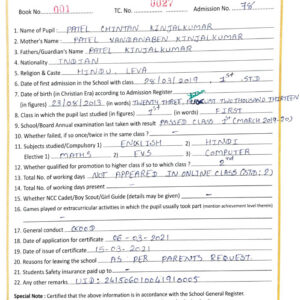 Book No. 001 TC. No. 0027 Admission No. 78
1 Name of Pupil PATEL CHINTAN KINJALKUMAR
2 Mother's Name PATEL VANDANABEN KINJALKUMAR
3 Fathers/Guardian's Name PATEL KINJALKUMAR
4 Nationality INDIAN
5 Religion & Caste HINDU, LEVA
6 Date of first admission in the School with class 28/03/2019 1st STD
7 Date of birth (in Christian Era) according to Admission Register
(in figures) 23/08/2013 (in words) TWENTY THREE, TWO THOUSAND THIRTEEN
8 Class in which the pupil last studied (in figures) 1st (in words) FIRST
9 School/Board Annual examination last taken with result PASSED CLASS 1st (MARCH 2019-20)
10 Whether failed, if so once/twice in the same class
11 Subjects studied/Compulsory 1) ENGLISH 2) HINDI
Elective 1) MATHS 2) EVS 3) COMPUTER
12 Whether qualified for promotion to higher class if so to which class? 2nd
13 Total No. of working days NOT APPEARED IN ONLINE CLASS (STD: 2)
14 Total No. of working days present
15 Whether NCC Cadet/Boy Scout/Girl Guide (details may be given)
16 Games played or extracurricular activities in which the pupil usually took part (mention achievement level therein)
17 General conduct GOOD
18 Date of application for certificate 08-03-2021
19 Date of issue of certificate 15-03-2021
20 Reasons for leaving the school AS PER PARENTS REQUEST
21 Students Safety insurance paid up to
22 Any other remarks UID: 241506100419 10005
Special Note : Certified that the above information is in accordance with the School General Register.